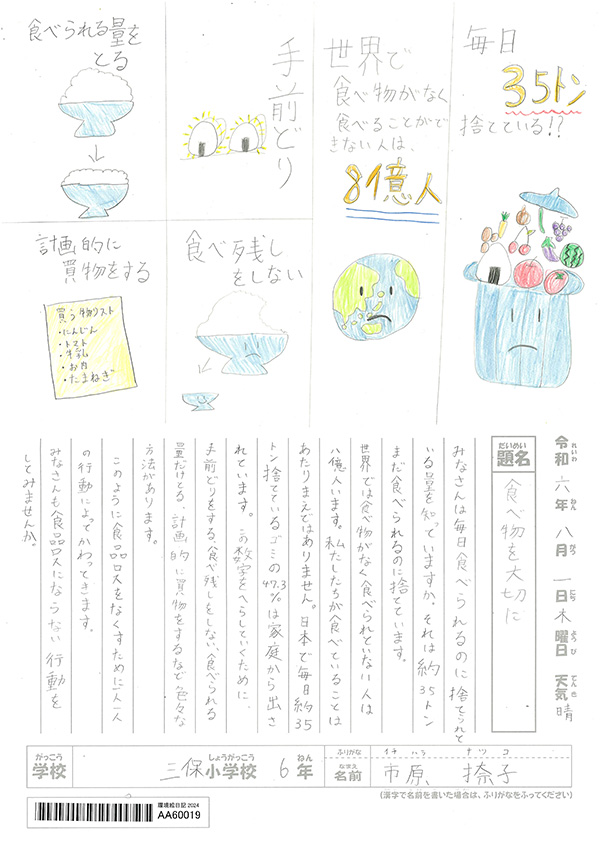 毎日
35トン
捨てている!?
世界で
食べ物がなく
食べることがで
きない人は、
8億人
手前どり
食べられる量を
とる
食べ残し
をしない
計画的に
買物をする
買う物リスト
・にんじん
・トマト
・牛乳
・お肉
・たまねぎ
令和六年八月一日木曜日 天気晴
れいわ ねん がつ にち ようび てんき
だいめい
題名
食べ物を大切に
みなさんは毎日食べられるのに捨てられて
いる量を知っていますか。それは約35トン
まだ食べられるのに捨てています。
世界では食べ物がなく食べられていない人は
八億人います。私たちが食べていることは
あたりまえではありません。日本で毎日約35
トン捨てているゴミの47.3%は家庭から出さ
れています。この数字をへらしていくために、
手前どりをする、食べ残しをしない、食べられる
量だけとる、計画的に買物をするなど色々な
方法があります。
このように食品ロスをなくすために一人一人
の行動によってかわってきます。
みなさんも食品ロスにならない行動を
してみませんか。
がっこう
学校
三保小学校 6年
しょうがっこう ねん
ふりがな
イチハラ ナツコ
なまえ
名前
市原 捺子
(漢字で名前を書いた場合は、ふりがなをふってください)
環境絵日記2024
AA60019